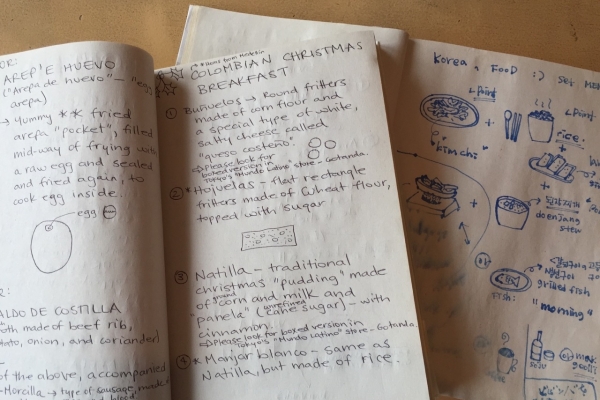 OR:
AREP'E HUEVO
("Arepa de huevo" — "egg
arepa)
→ yummy ** fried
arepa "pocket", filled
mid-way of frying with
a raw egg and sealed
and fried again, to
cook egg inside...
egg
2:
ALDO DE COSTILLA
oth made of beef rib,
tato, onion, and coriander)
of the above, accompanied
Morcilla → type of sausage, made
blood
COLOMBIAN CHRISTMAS
BREAKFAST
① Buñuelos → Round fritters
made of corn flour and
a special type of white,
salty cheese called
"queso costeño".
⇨ Please look for
boxed version in
Tokyo's "Mundo Latino" store - Gotanda.
② * Hojuelas - flat rectangle
fritters made of wheat flour,
topped with sugar
③ Natilla - traditional
christmas "pudding" made
of ground corn and milk and
"panela" (unrefined cane sugar) - with
cinnamon.
⇨ Please look for boxed version in
Tokyo's "Mundo Latino" store - Gotanda.
④ * Manjar blanco - same as
Natilla, but made of rice.
Korea, Food :) Set ME
Point
+
Point
rice.
kimchi
+
+
된장찌개
doenjang
stew
+
grilled fish
FISH:
"morning"
soju